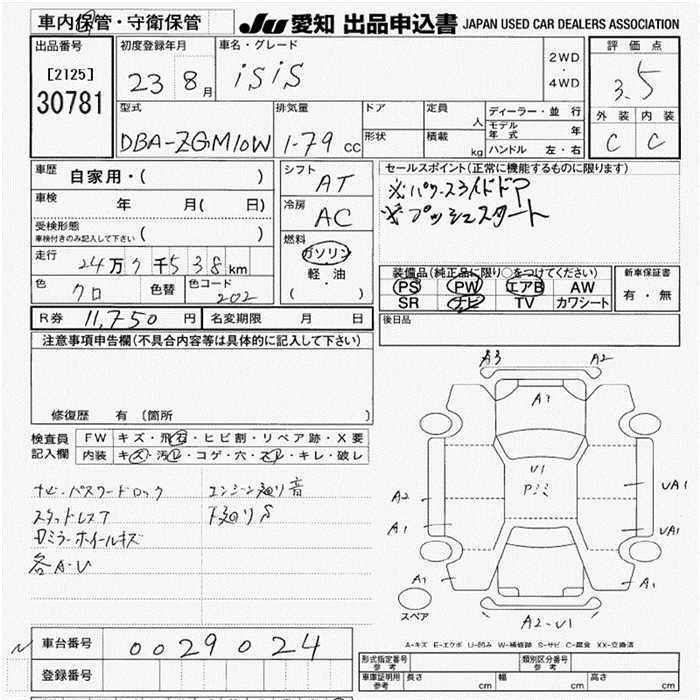 車内保管・守衛保管
JU 愛知 出品申込書 JAPAN USED CAR DEALERS ASSOCIATION
出品番号
[2125]
30781
初度登録年月
23 8月
車名・グレード
isis
2WD
・
4WD
評価点
3.5
外装 内装
C C
型式
DBA-ZGM10W
排気量
1.79 cc
ドア
形状
定員
人
積載
kg
ディーラー・並行
モデル年式 年
ハンドル 左・右
車歴
自家用・( )
車検
年 月( 日)
受検形態
車検付きのみ記入して下さい ( )
走行
24万 7千538km
色
クロ
色替
色コード
202
シフト
AT
冷房
AC
燃料
ガソリン
軽・油
( ・ )
セールスポイント(正常に機能するものに限ります)
※パワースライドドア
※プッシュスタート
装備品(純正品に限り○をつけてください)
PS PW エアB AW
SR ナビ TV カワシート
新車保証書
有・無
R券 11,750 円
名変期限 月 日
後日品
注意事項申告欄(不具合内容等は具体的に記入して下さい)
修復歴 有 (箇所 )
検査員
記入欄
FW キズ・飛石・ヒビ割・リペア跡・X要
内装 キズ・汚レ・コゲ・穴・スレ・キレ・破レ
ナビ・パスワードロック
エンジン廻り音
スタッドレスT
下廻りS
ロミラーホイールキズ
各A・U
A3 A2
A1
U1
Pシミ
A2
UA1
A1
UA1
A1
A1
スペア
A2-U1
A-キズ E-エクボ U-凹み W-補修跡 S-サビ C-腐食 XX-交換済
車台番号
0029024
登録番号
形式指定番号
参考
類別区分番号
参考
車庫証明用
参考
長さ cm
幅 cm
高さ cm